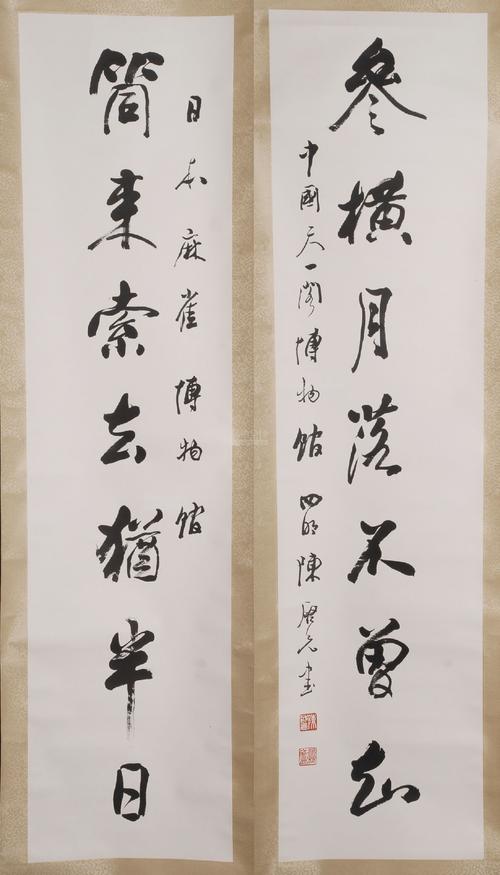 參橫月落不曾知
中國天一閣博物館 四明陳啓元書
日本麻雀博物館
筒来索去猶半日